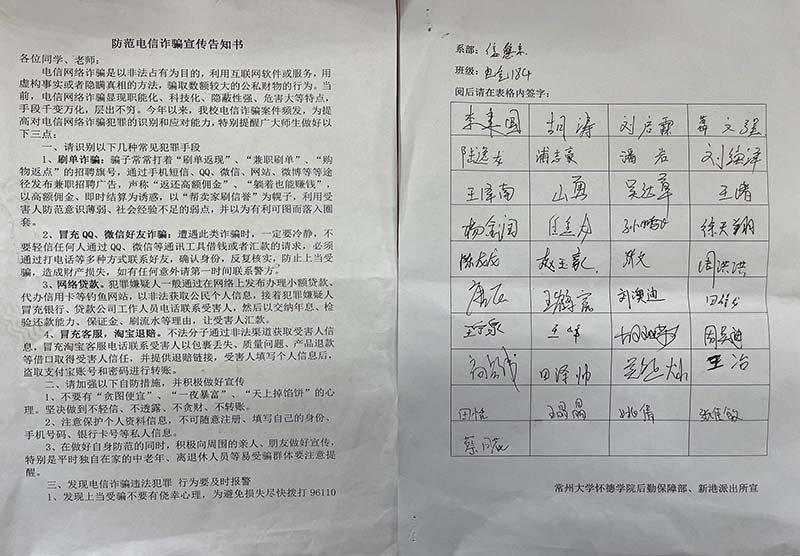 防范电信诈骗宣传告知书
各位同学、老师:
电信网络诈骗是以非法占有为目的，利用互联网软件或服务，用
虚构事实或者隐瞒真相的方法，骗取数额较大的公私财物的行为。当
前，电信网络诈骗显现职能化、科技化、隐蔽性强、危害大等特点，
手段千变万化，层出不穷。今年以来，我校电信诈骗案件频发，为提
高对电信网络诈骗犯罪的识别和应对能力，特别提醒广大师生做好以
下三点：
一、请识别以下几种常见犯罪手段
1、刷单诈骗：骗子常常打着“刷单返现”、“兼职刷单”、“购
物返点”的招聘旗号，通过手机短信、QQ、微信、网站、微博等等途
径发布兼职招聘广告，声称“返还高额佣金”、“躺着也能赚钱”，
以高额佣金、即时结算为诱惑，以“帮卖家刷信誉”为幌子，利用受
害人防范意识薄弱、社会经验不足的弱点，并以为有利可图而落入圈
套。
2、冒充QQ、微信好友诈骗：遭遇此类诈骗时，一定要冷静，不
要轻信任何人通过QQ、微信等通讯工具借钱或者汇款的请求，必须
通过打电话等多种方式联系好友，确认身份，反复核实，防止上当受
骗，造成财产损失，如有任何意外请第一时间联系警方。
3、网络贷款。犯罪嫌疑人一般通过在网络上发布办理小额贷款、
代办信用卡等钓鱼网站，以非法获取公民个人信息，接着犯罪嫌疑人
冒充银行、贷款公司工作人员电话联系受害人，然后以交纳年息、检
验还款能力、保证金、刷流水等理由，让受害人汇款。
4、冒充客服，淘宝退赔。不法分子通过非法渠道获取受害人信
息，冒充淘宝客服电话联系受害人以包裹丢失、质量问题、产品退款
等借口取得受害人信任，并提供退赔链接，受害人填写个人信息后，
盗取支付宝账号和密码进行转账。
二、请加强以下自防措施，并积极做好宣传
1、不要有“贪图便宜”、“一夜暴富”、“天上掉馅饼”的心
理。坚决做到不轻信、不透露、不贪财、不转账。
2、注意保护个人资料信息，不可随意注册、填写自己的身份、
手机号码、银行卡号等私人信息。
3、在做好自身防范的同时，积极向周围的亲人、朋友做好宣传，
特别是平时独自在家的中老年、离退休人员等易受骗群体要注意提
醒。
三、发现电信诈骗违法犯罪 行为要及时报警
1、发现上当受骗不要有侥幸心理，为避免损失尽快拨打96110
系部：信息系
班级：184
阅后请在表格内签字：
胡涛 刘启霖 文强
陆逸 浦志豪 潘君 刘
王泽南 山勇 王靖
杨金润 徐天翔
陈龙龙 赵玉 周洪洪
唐 王 刘澳迪 田
王 周昊迪
田泽帅 王冶
田恬 姚倩
蔡
常州大学怀德学院后勤保障部、新港派出所宣